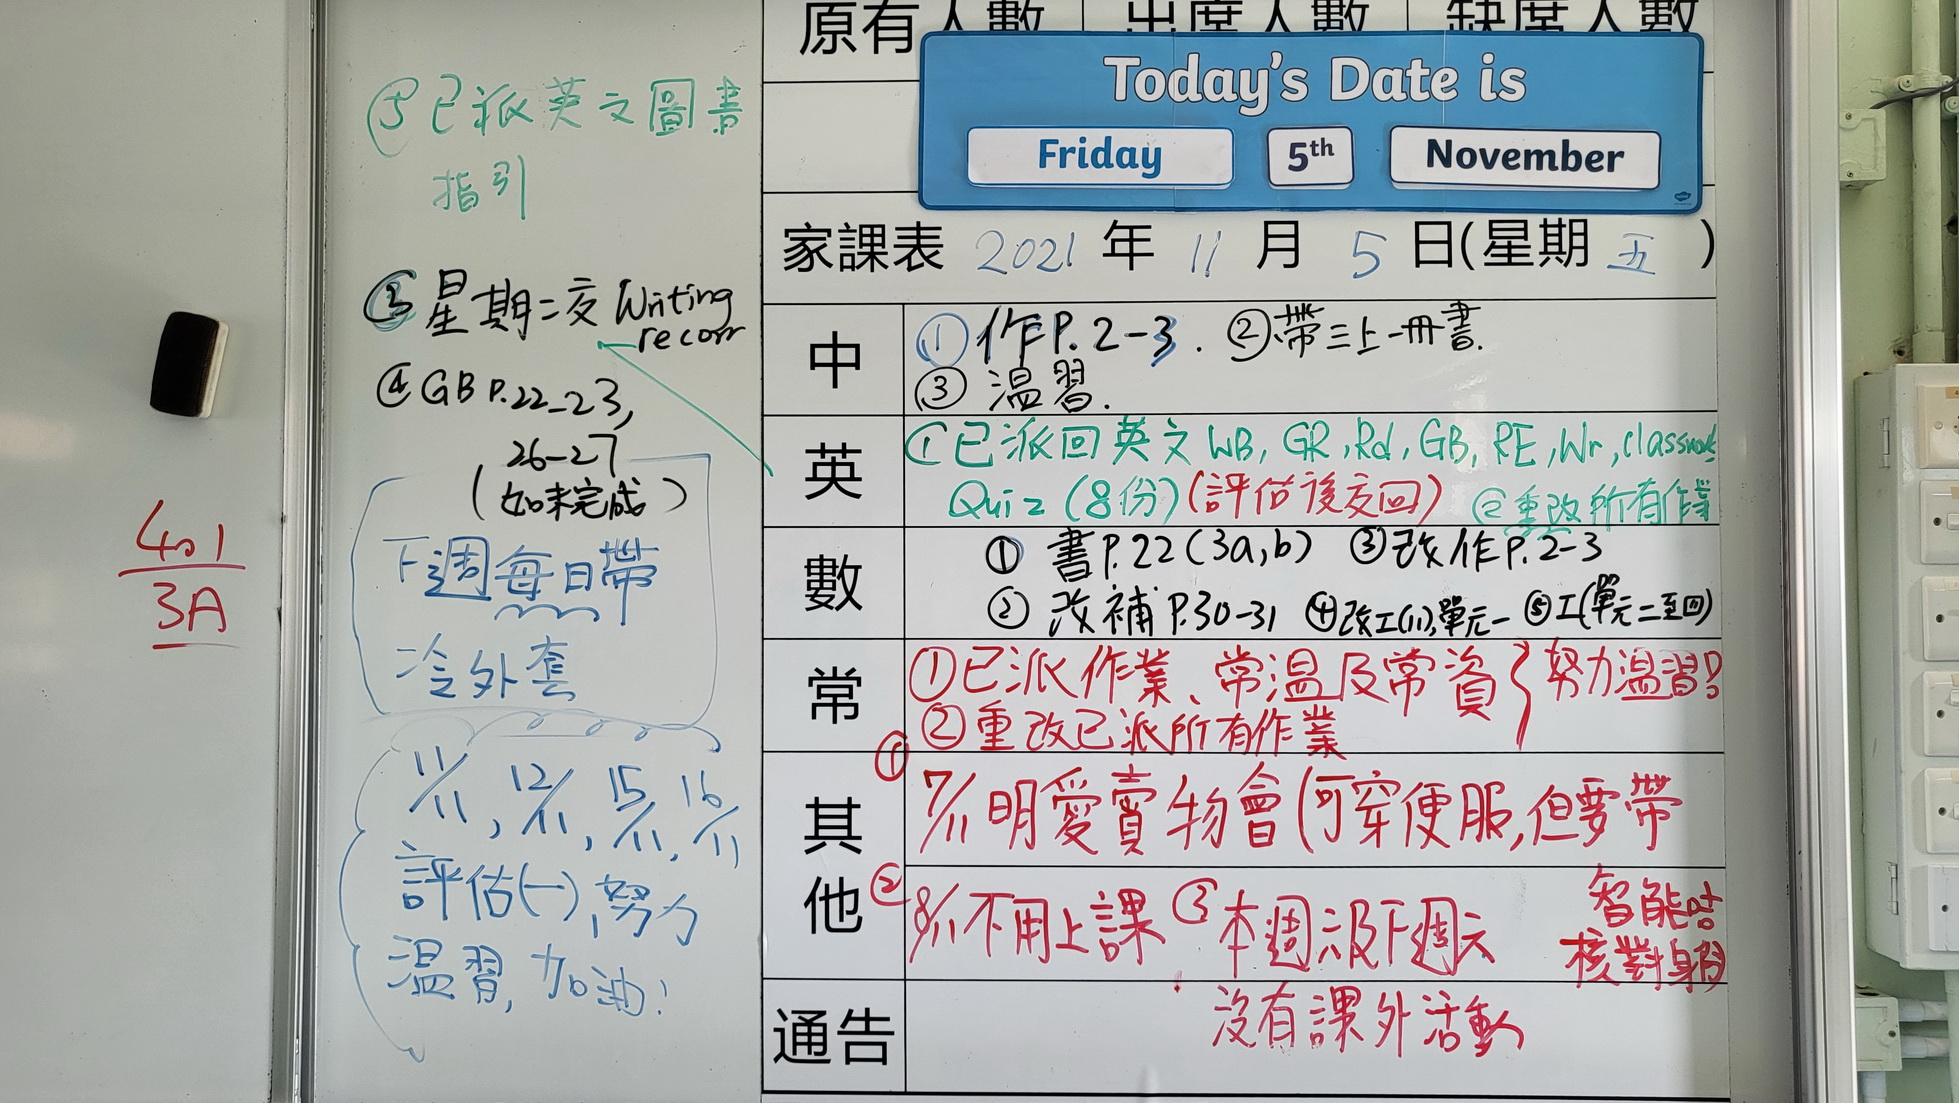 ⑤已派英文圖書
指引
③星期二交 Writing
recorr
④GB P.22-23,
26-27
(如未完成)
下週每日帶
冷外套
11/11, 12/11, 15/11, 16/11
評估(一),努力
溫習,加油!
401
3A
原有人數 出席人數 缺席人數
Today's Date is
Friday 5th November
家課表 2021 年 11 月 5 日(星期 五 )
中
①作P.2-3. ②帶三上一冊書.
③溫習.
英
①已派回英文WB, GR, Rd, GB, RE, Wr, classwork
Quiz (8份)(評估後交回) ②重改所有作業
數
① 書P.22(3a,b) ③改作P.2-3
② 改補P.30-31 ④改工(11),單元一 ⑤工(單元二至四)
常
①已派作業、常溫及常資}努力溫習!
②重改已派所有作業
其他
①7/11明愛賣物會(可穿便服,但要帶
智能咭
核對身份
②8/11不用上課 ③本週六及下週六
沒有課外活動
通告